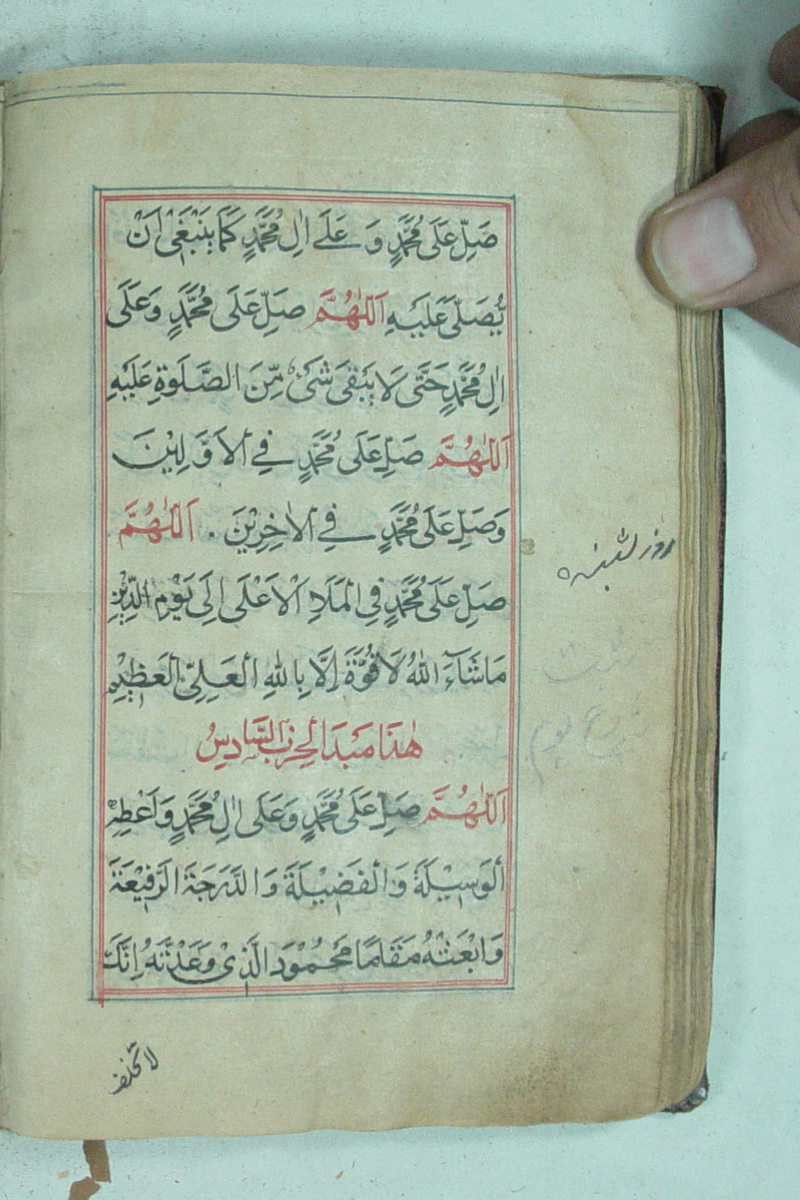 صَلِّ عَلَى مُحَمَّدٍ وَ عَلَے اٰلِ مُحَمَّدٍ كَمَا يَنْبَغِىْ اَنْ
يُّصَلّٰى عَلَيْهِ اَللّٰهُمَّ صَلِّ عَلَى مُحَمَّدٍ وَعَلَى
اٰلِ مُحَمَّدٍ حَتّٰى لَا يَبْقٰى شَىْءٌ مِّنَ الصَّلٰوةِ عَلَيْهِ
اَللّٰهُمَّ صَلِّ عَلَى مُحَمَّدٍ فِے الْاَوَّلِيْنَ
وَصَلِّ عَلَى مُحَمَّدٍ فِے الْاٰخِرِيْنَ . اَللّٰهُمَّ
صَلِّ عَلَى مُحَمَّدٍ فِى الْمَلَاِ الْاَعْلَى اِلَى يَوْمِ الدِّيْنِ
مَاشَآءَ اللّٰهُ لَا قُوَّةَ اِلَّا بِاللّٰهِ الْعَلِىِّ الْعَظِيْمِ
هٰذَا مَبْدَ الحِزْبِ السَّادِسُ
اَللّٰهُمَّ صَلِّ عَلَى مُحَمَّدٍ وَعَلَى اٰلِ مُحَمَّدٍ وَاَعْطِهِ
الْوَسِيْلَةَ وَالْفَضِيْلَةَ وَالدَّرَجَةَ الرَّفِيْعَةَ
وَابْعَثْهُ مَقَامًا مَحْمُوْدَ الَّذِىْ وَعَدْتَّهُ اِنَّكَ
لا تخلف
روز